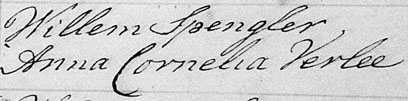 Willem Spengler
Anna Cornelia Verlee